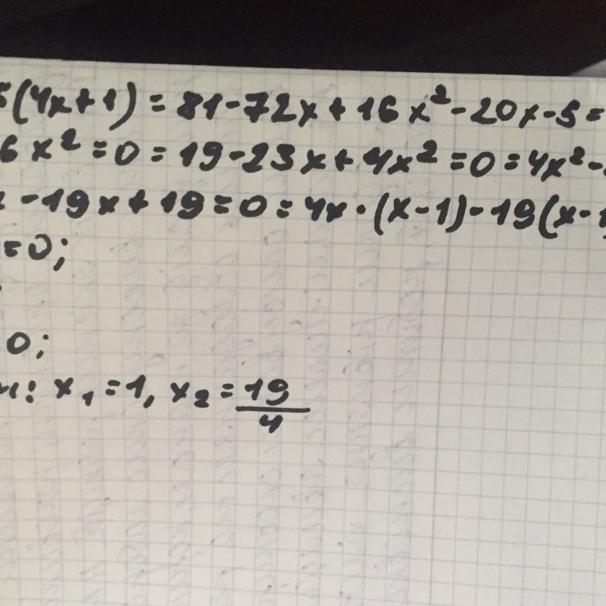 5(4x+1)=81-72x+16x²-20x-5=
6x²=0=19-23x+4x²=0=4x²-
-19x+19=0=4x·(x-1)-19(x-1
=0;
0;
: x₁=1, x₂=19/4